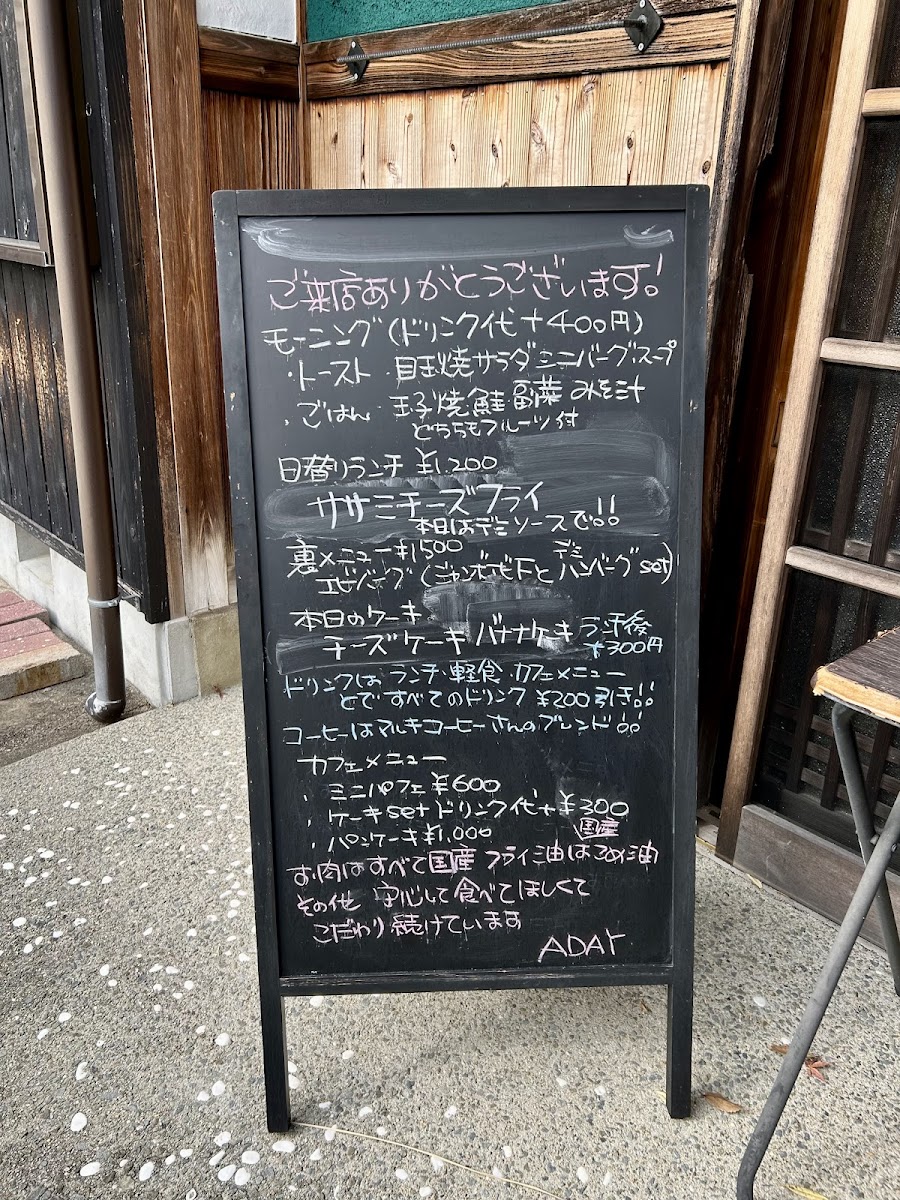 ご来店ありがとうございます!
モーニング(ドリンク代+400円)
・トースト 目玉焼 サラダ ミニバーグ スープ
・ごはん 玉子焼 鮭 副菜 みそ汁
どちらもフルーツ付
日替りランチ ¥1,200
ササミチーズフライ
本日はデミソースで!!
裏メニュー ¥1,500
エビバーグ(ジャンボエビ下とデミハンバーグset)
本日のケーキ
チーズケーキ バナナケーキ ランチ後
+300円
ドリンクは ランチ・軽食・カフェメニュー
とで すべてのドリンク ¥200引き!!
コーヒーはマルキコーヒーさんのブレンド!!
カフェメニュー
・ミニパフェ ¥600
・ケーキset ドリンク代+¥300
・パンケーキ ¥1,000
お肉はすべて国産 フライ油は国産こめ油
その他 安心して食べてほしくて
こだわり続けています
ADAY